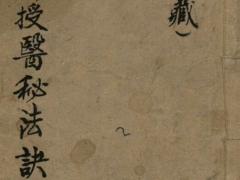 藏）
授醫秘法訣